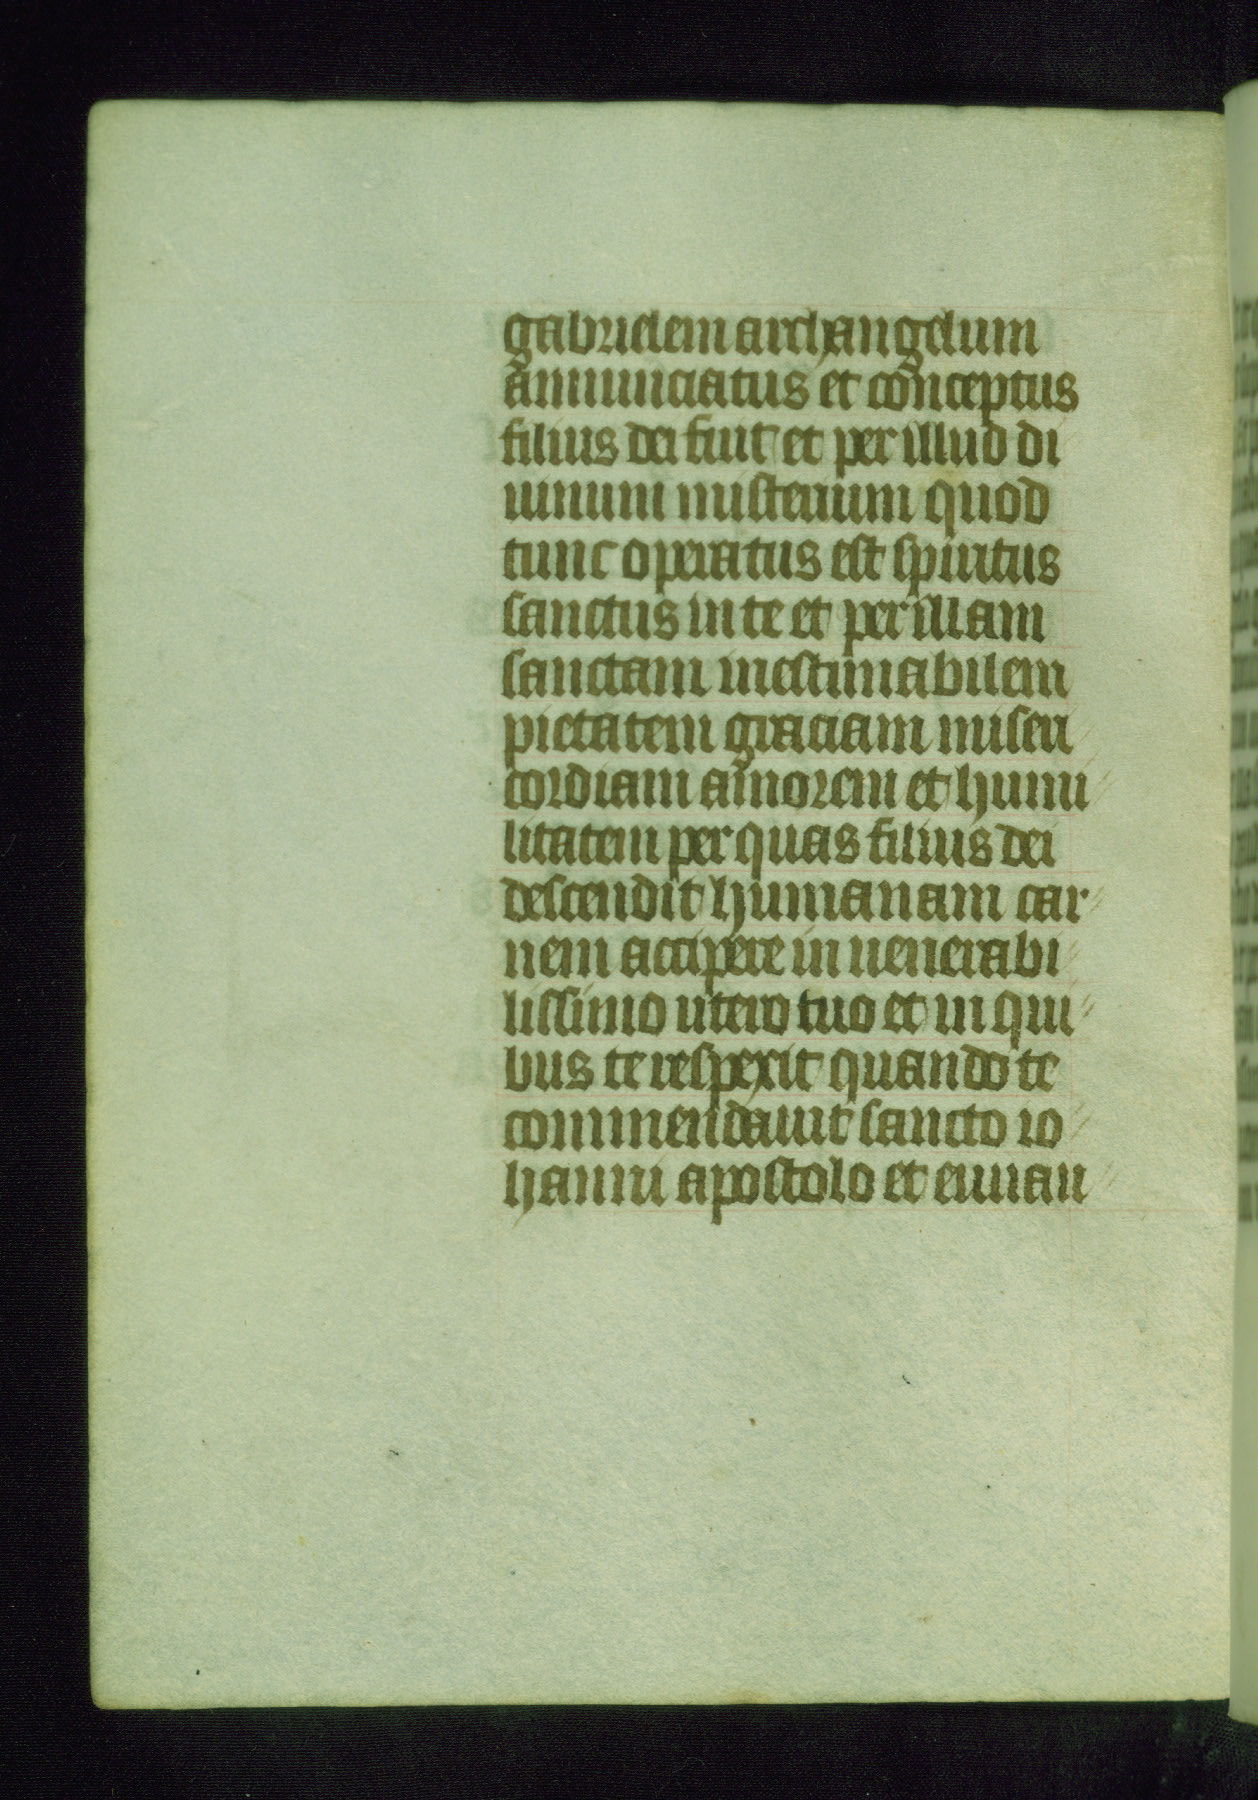 gabrielem archangelum
annunciatus et conceptus
filius dei fuit et per illud di
uinum misterium quod
tunc operatus est spiritus
sanctus in te et per illam
sanctam inestimabilem
pietatem graciam miseri
cordiam amorem et humi
litatem per quas filius dei
descendit humanam car
nem accipere in uenerabi
lissimo utero tuo et in qui
bus te respexit quando te
commendauit sancto io
hanni apostolo et euuan